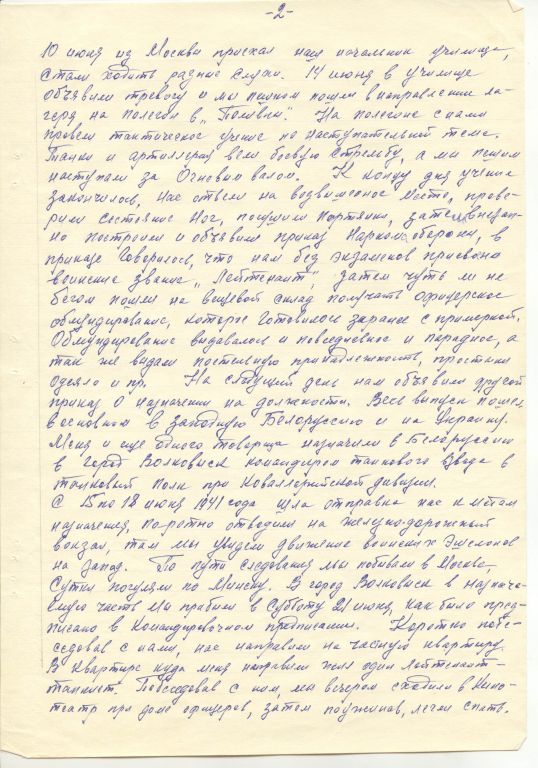 -2-
10 июня из Москвы приехал наш начальник училища,
стали ходить разные слухи. 14 июня в училище
объявили тревогу и мы пешком пошли в направлении ла-
геря на полегон в
На полегоне с нами
провели тактическое учение по наступательной теме.
Танки и артиллерия вели боевую стрельбу, а мы пешим
наступали за Огневым валом. К концу дня учение
закончилось, нас отвели на возвышеное место, прове-
рили состояние ног, посушили портянки, затем внезап-
но построили и объявили приказ Наркома обороны, в
приказе говорилось, что нам без экзаменов присвоено
воинское звание „Лейтенант", затем чуть ли не
бегом пошли на вещевой склад получать офицерское
обмундирование, которое готовилось заранее с примеркой.
Обмундирование выдавалось и повседневное и парадное, а
так же выдали постельную принадлежность, простыни
одеяло и пр. На следущий день нам объявили другой
приказ о назначении на должности. Весь выпуск пошел
в основном в западную Белоруссию и на Украину.
Меня и еще одного товарища назначили в Белоруссии
в город Волковыск командиром танкового взвода в
танковый полк при Кавалерийской дивизии.
С 15 по 18 июня 1941 года шла отправка нас к местам
назначения, по-ротно отводили на железно-дорожный
вокзал, там мы увидели движение воинских эшелонов
на запад. По пути следования мы побывали в Москве,
сутки погуляли по Минску. В город Волковыск в назнача-
емую часть мы прибыли в субботу 21 июня, как было пред-
писано в командировочном предписании. Коротко побе-
седовав с нами, нас направили на частную квартиру.
В квартире куда меня направили жил один лейтенант-
танкист. Побеседовав с ним, мы вечером сходили в кино-
театр при доме офицеров, затем поужинав, легли спать.